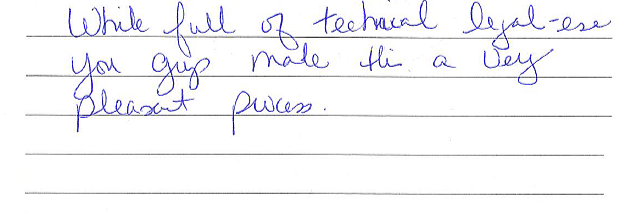 While full of technical legal-ese
you guys made this a very
pleasant process.